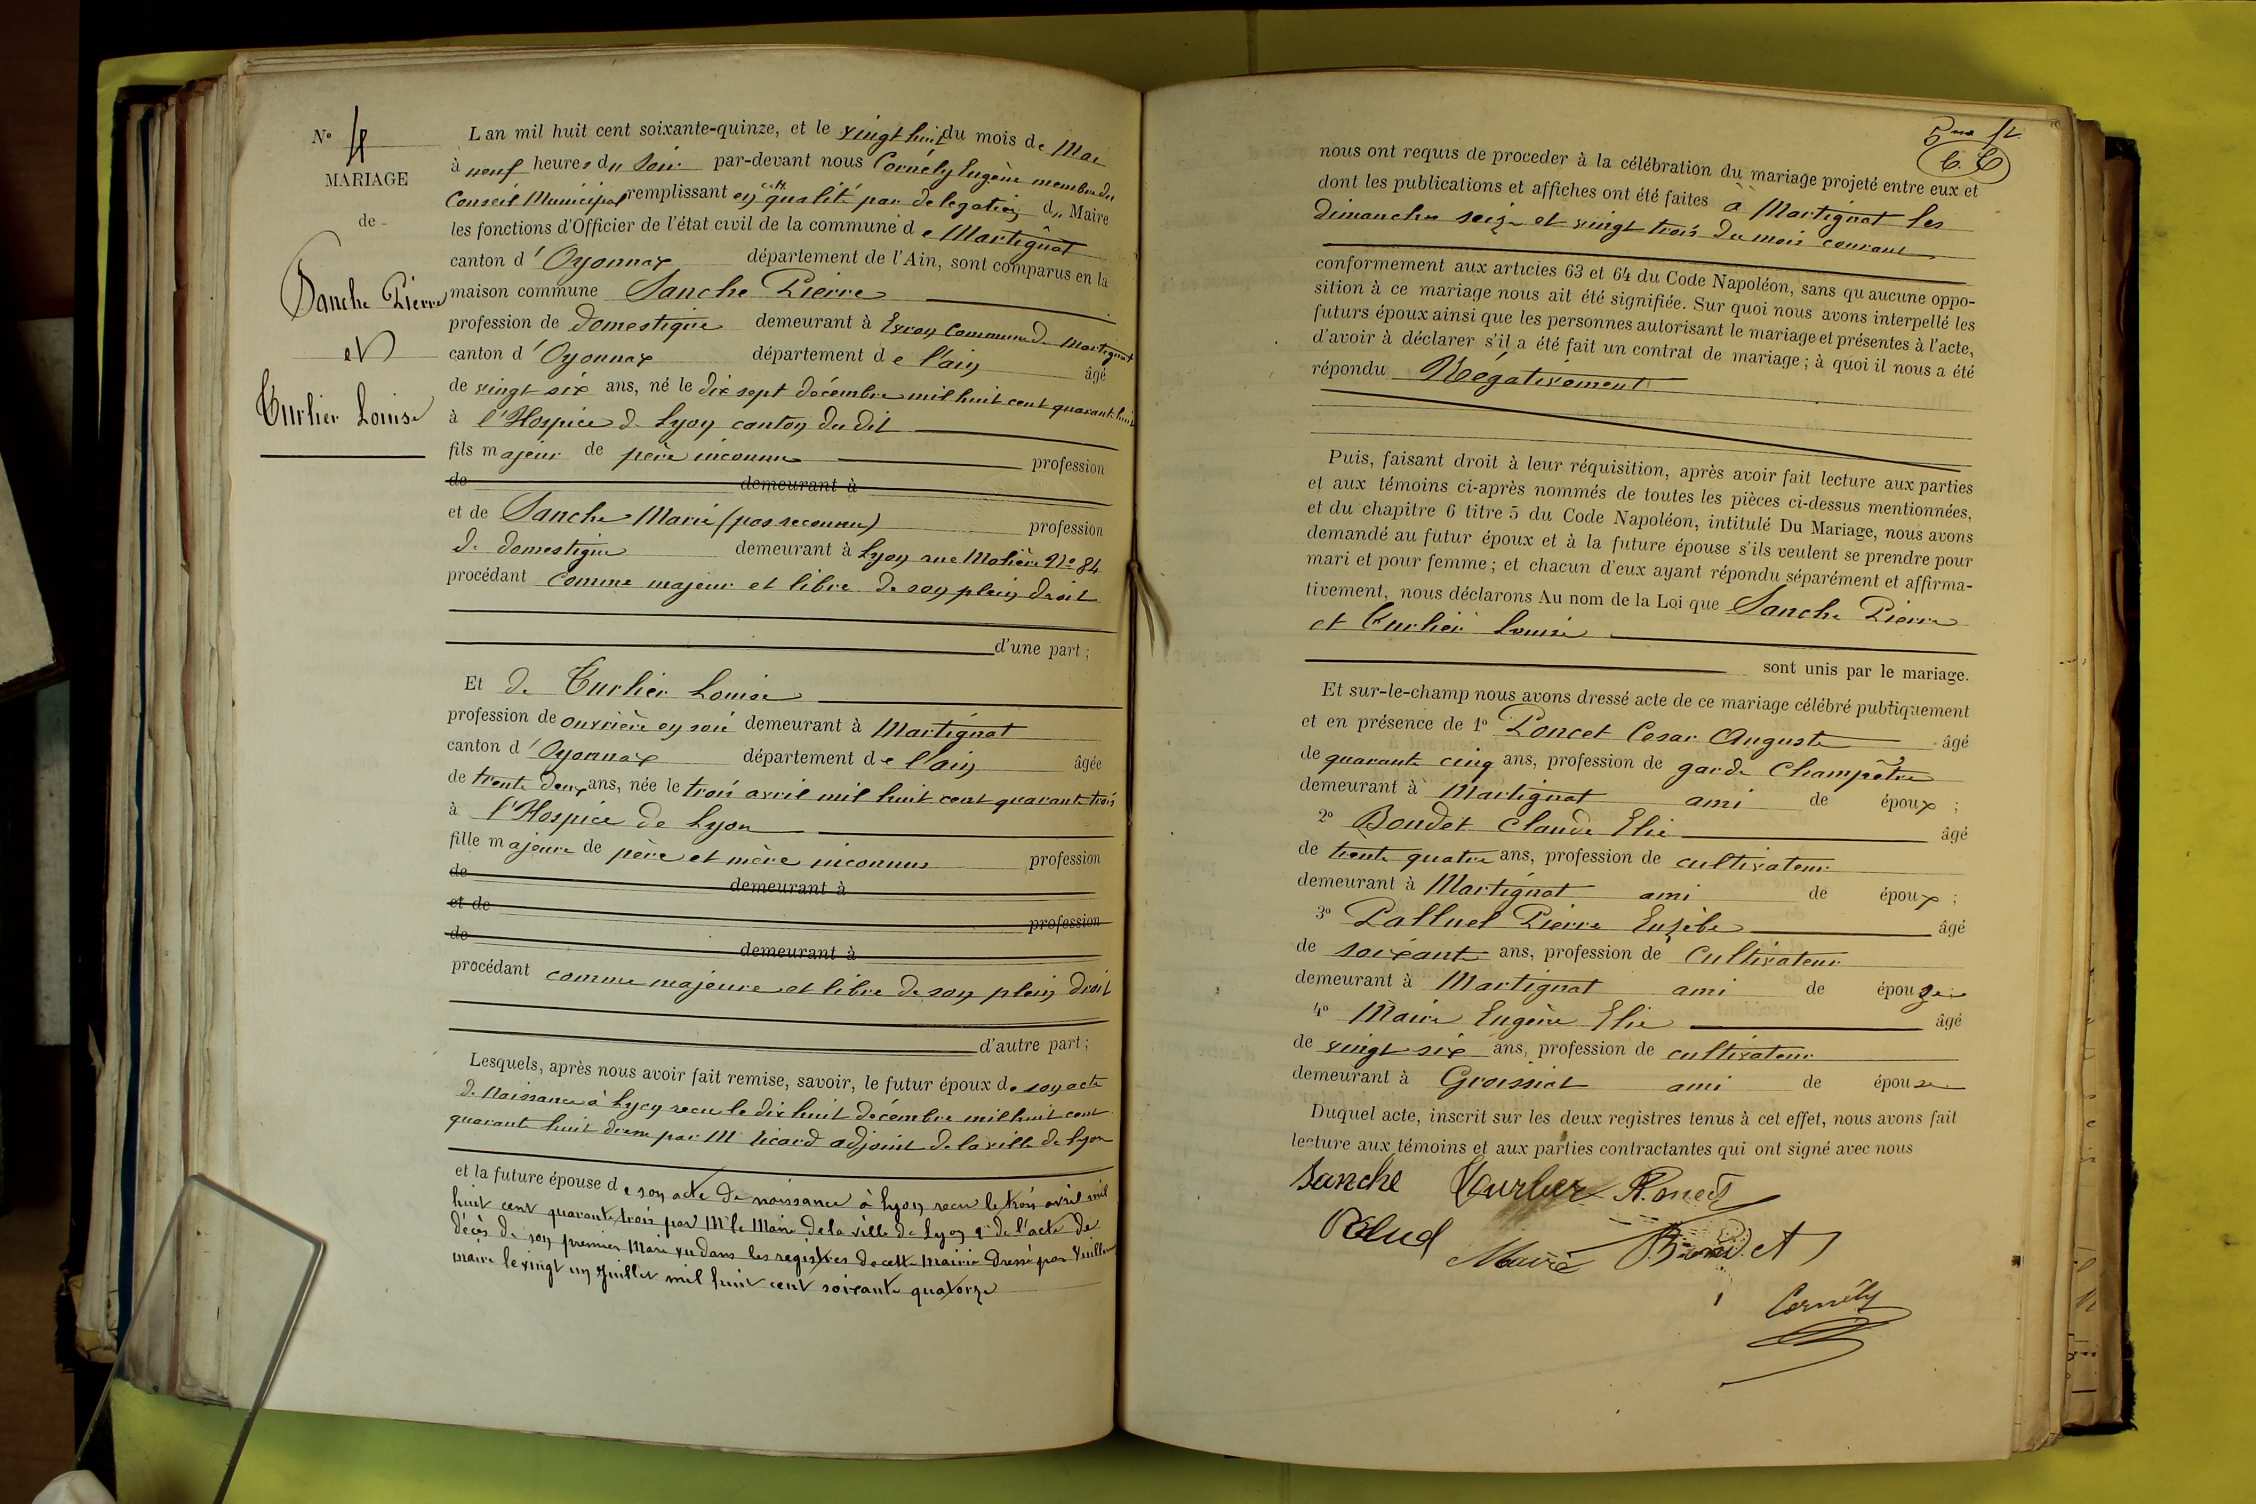 N° 4
MARIAGE
de
Sanche Pierre
et
Turlier Louise
L'an mil huit cent soixante-quinze, et le vingt huit du mois de Mai
à neuf heures du Soir par-devant nous Cornély Eugène membre du
Conseil Municipal remplissant en cette qualité par délégation du Maire
les fonctions d'Officier de l'état civil de la commune de Martignat
canton d'Oyonnax département de l'Ain, sont comparus en la
maison commune Sanche Pierre
profession de domestique demeurant à Evron Commune de Martignat
canton d'Oyonnax département de l'ain âgé
de vingt six ans, né le dix sept décembre mil huit cent quarante huit
à l'Hospice de Lyon canton du dit
fils majeur de père inconnu profession
de demeurant à
et de Sanche Marie (pas reconnu) profession
de domestique demeurant à Lyon rue Molière N° 84
procédant comme majeur et libre de son plein droit
d'une part ;
Et de Turlier Louise
profession de ouvrière en soie demeurant à Martignat
canton d'Oyonnax département de l'ain âgée
de trente deux ans, née le trois avril mil huit cent quarante trois
à l'Hospice de Lyon
fille majeure de père et mère inconnus profession
de demeurant à
et de profession
de demeurant à
procédant comme majeure et libre de son plein droit
d'autre part ;
Lesquels, après nous avoir fait remise, savoir, le futur époux de son acte
de Naissance à Lyon recu le dix huit décembre mil huit cent
quarante huit dressé par Mr adjoint de la ville de Lyon
et la future épouse de son acte de naissance à Lyon recu le trois avril mil
huit cent quarante trois par Mr le Maire de la ville de Lyon 2° de l'acte de
décès de son premier Mari vu dans les registres de cette mairie dressé par Vuillerme
maire le vingt un Juillet mil huit cent soixante quatorze
C. C
nous ont requis de procéder à la célébration du mariage projeté entre eux et
dont les publications et affiches ont été faites à Martignat les
dimanches seize et vingt trois du mois courant
conformément aux articles 63 et 64 du Code Napoléon, sans qu'aucune oppo-
sition à ce mariage nous ait été signifiée. Sur quoi nous avons interpellé les
futurs époux ainsi que les personnes autorisant le mariage et présentes à l'acte,
d'avoir à déclarer s'il a été fait un contrat de mariage ; à quoi il nous a été
répondu Négativement
Puis, faisant droit à leur réquisition, après avoir fait lecture aux parties
et aux témoins ci-après nommés de toutes les pièces ci-dessus mentionnées,
et du chapitre 6 titre 5 du Code Napoléon, intitulé Du Mariage, nous avons
demandé au futur époux et à la future épouse s'ils veulent se prendre pour
mari et pour femme ; et chacun d'eux ayant répondu séparément et affirma-
tivement, nous déclarons Au nom de la Loi que Sanche Pierre
et Turlier Louise
sont unis par le mariage.
Et sur-le-champ nous avons dressé acte de ce mariage célébré publiquement
et en présence de 1° Poncet Cesar Auguste âgé
de quarante cinq ans, profession de garde Champêtre
demeurant à Martignat ami de époux ;
2° Bondet Claude Elie âgé
de trente quatre ans, profession de cultivateur
demeurant à Martignat ami de époux ;
3° Palluel Pierre Euzèbe âgé
de soixante ans, profession de Cultivateur
demeurant à Martignat ami de épouse
4° Maire Eugène Elie âgé
de vingt six ans, profession de cultivateur
demeurant à Groissiat ami de épouse
Duquel acte, inscrit sur les deux registres tenus à cet effet, nous avons fait
lecture aux témoins et aux parties contractantes qui ont signé avec nous
Sanche Turlier
Maire Bondet
Cornély